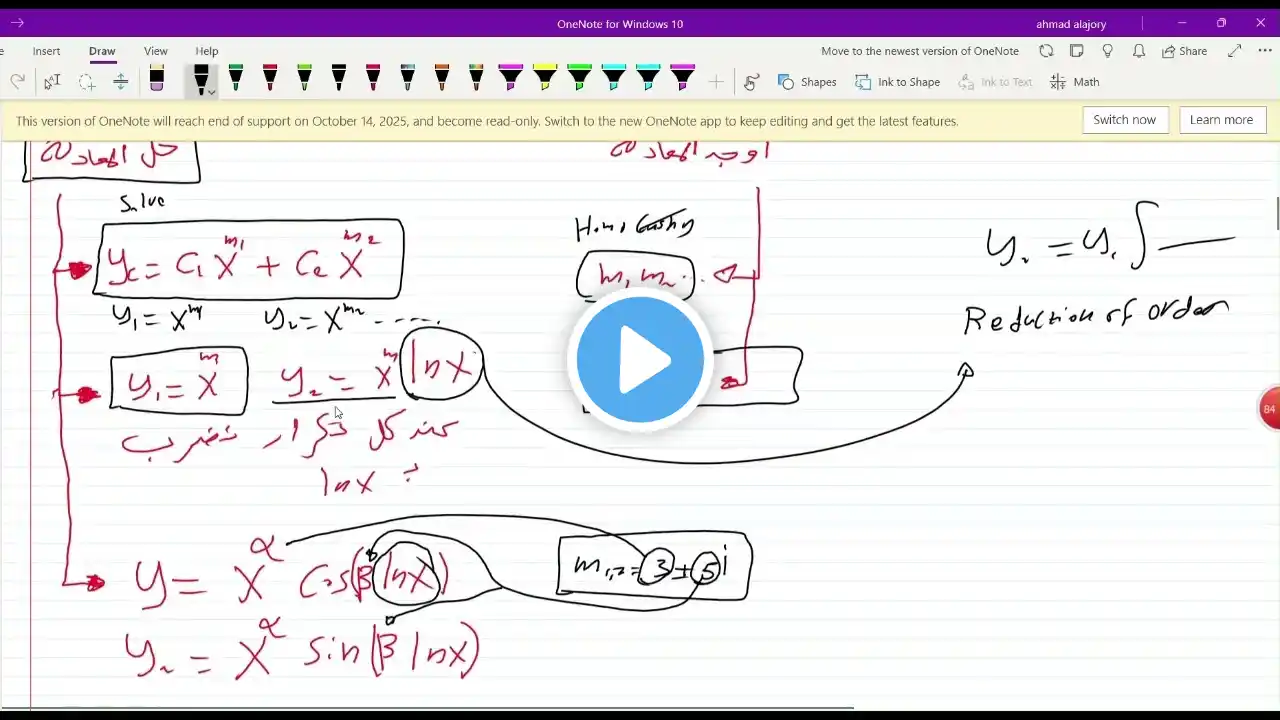 OneNote for Windows 10
ahmad alajory
Insert Draw View Help
Move to the newest version of OneNote
Share
Shapes Ink to Shape Ink to Text Math
This version of OneNote will reach end of support on October 14, 2025, and become read-only. Switch to the new OneNote app to keep editing and get the latest features.
Switch now Learn more
حل المعادلة
اوجد المعادلة
Solve
Homo Cauchy
y_c = C₁ X^m₁ + C₂ X^m₂
m₁ m₂ ..
y₂ = y₁ ∫ —
y₁ = X^m₁ y₂ = X^m₂ -----
Reduction of order
y₁ = X^m y₂ = X^m lnX
84
عند كل تكرار نضرب
lnX
y = X^α Cos(β lnX)
m₁,₂ = 3 ± 5 i
y₂ = X^α Sin(β lnX)